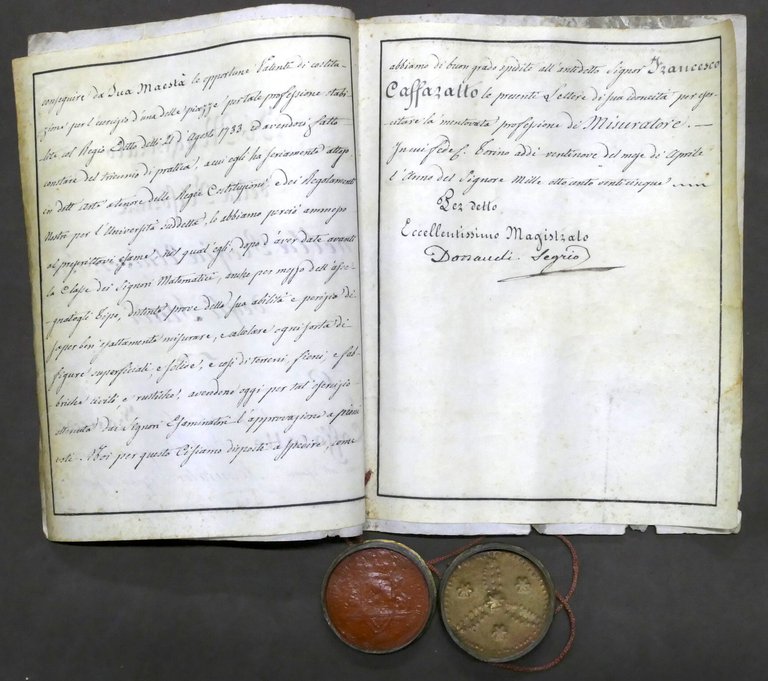 conseguire da Sua Maestà le opportune Patenti di costitu-
zione per l'esercizio d'una delle piazze per tale professione stabi-
lite col Regio Editto delli 21 d'Agosto 1733, ed avendoci fatto
constare del triennio di pratica, a cui egli ha seriamente atteso
in dett'arte a tenore delle Regie Costituzioni, e dei Regolamenti
Nostri per l'Università suddetta, lo abbiamo perciò ammesso
al prescrittovi esame, nel quale egli, dopo d'aver date avanti
la Classe dei Signori Matematici, anche per mezzo dell'asse-
gnatogli Tipo, distinte prove della sua abilità e perizia di
saper ben esattamente misurare, e calcolare ogni sorta di
figure superficiali, e solide, e così di terreni, fieni, e fab-
briche civili e rustiche, avendone oggi per tal esercizio
ottenuta dai Signori Esaminatori l'approvazione a pieni
voti. Noi per questo Ci siamo disposti a spedire, come
abbiamo di buon grado spedite all'antidetto Signor Francesco
Caffaratto le presenti Lettere di sua idoneità per eser-
citare la mentovata professione di Misuratore. —
In cui fede &. Torino addì ventinove del mese di Aprile
l'Anno del Signore Mille otto cento venti cinque
Per detto
Eccellentissimo Magistrato
Segrio